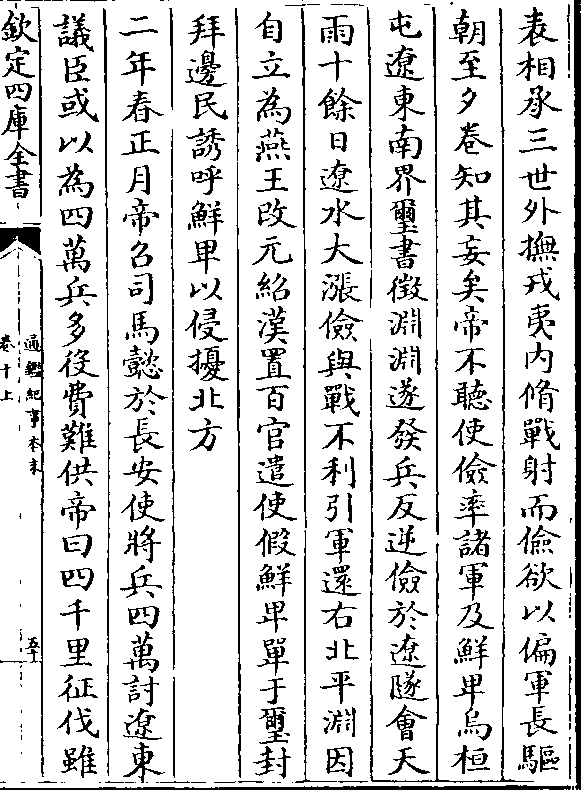 表相承三世外撫戎夷内脩戰射而儉欲以偏軍長驅
朝至夕卷知其妄矣帝不聽使儉率諸軍及鮮卑烏桓
屯遼東南界璽書徵淵淵遂發兵反逆儉於遼隧會天
雨十餘日遼水大漲儉與戰不利引軍還右北平淵因
自立為燕王改元紹漢置百官遣使假鮮卑單于璽封
拜邊民誘呼鮮卑以侵擾北方
二年春正月帝召司馬懿於長安使將兵四萬討遼東
議臣或以為四萬兵多役費難供帝曰四千里征伐雖
欽定四庫全書
通鑑紀事本末
卷十上